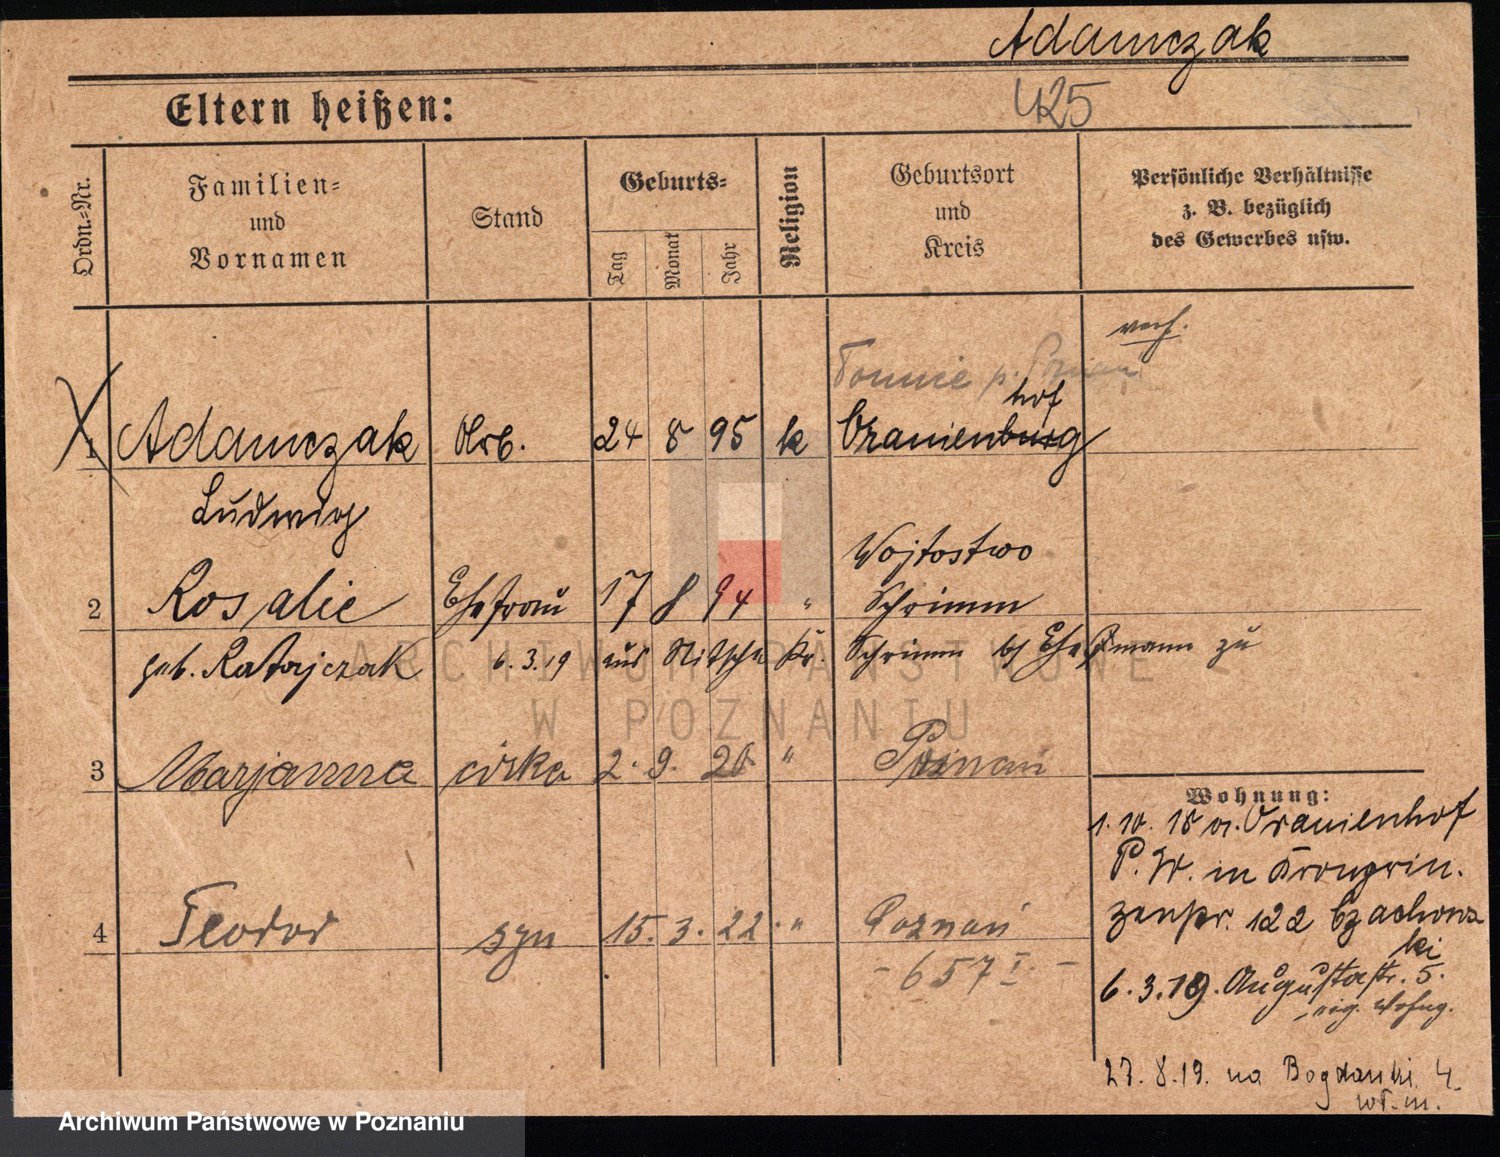 Adamczak
425
Eltern heißen:
Ordn.-Nr.
Familien-
und
Vornamen
Stand
Geburts-
Tag
Monat
Jahr
Religion
Geburtsort
und
Kreis
Persönliche Verhältnisse
z. B. bezüglich
des Gewerbes usw.
verh.
hof
1 Adamczak Arb. 24 8 95 k Oranienburg
Ludwig
Wojtostwo
2 Rosalie Ehefrau 17 8 94 " Schrimm
geb. Ratajczak 6. 3. 19 aus Nitsche Kr. Schrimm bj Ehemann zu
3 Marjanna córka 2. 9. 20 " Poznań
Wohnung:
1. 10. 18 v. Oranienhof
P. W. in Kronprin.
zenstr. 122 b/ Czachows
ki
4 Teodor syn 15. 3. 22. " Poznań
- 657 I. -
6. 3. 19. Augustastr. 5.
eig. Wohng.
27. 8. 19. na Bogdanki 4
wł. m.
ARCHIWUM PAŃSTWOWE
W POZNANIU
Archiwum Państwowe w Poznaniu